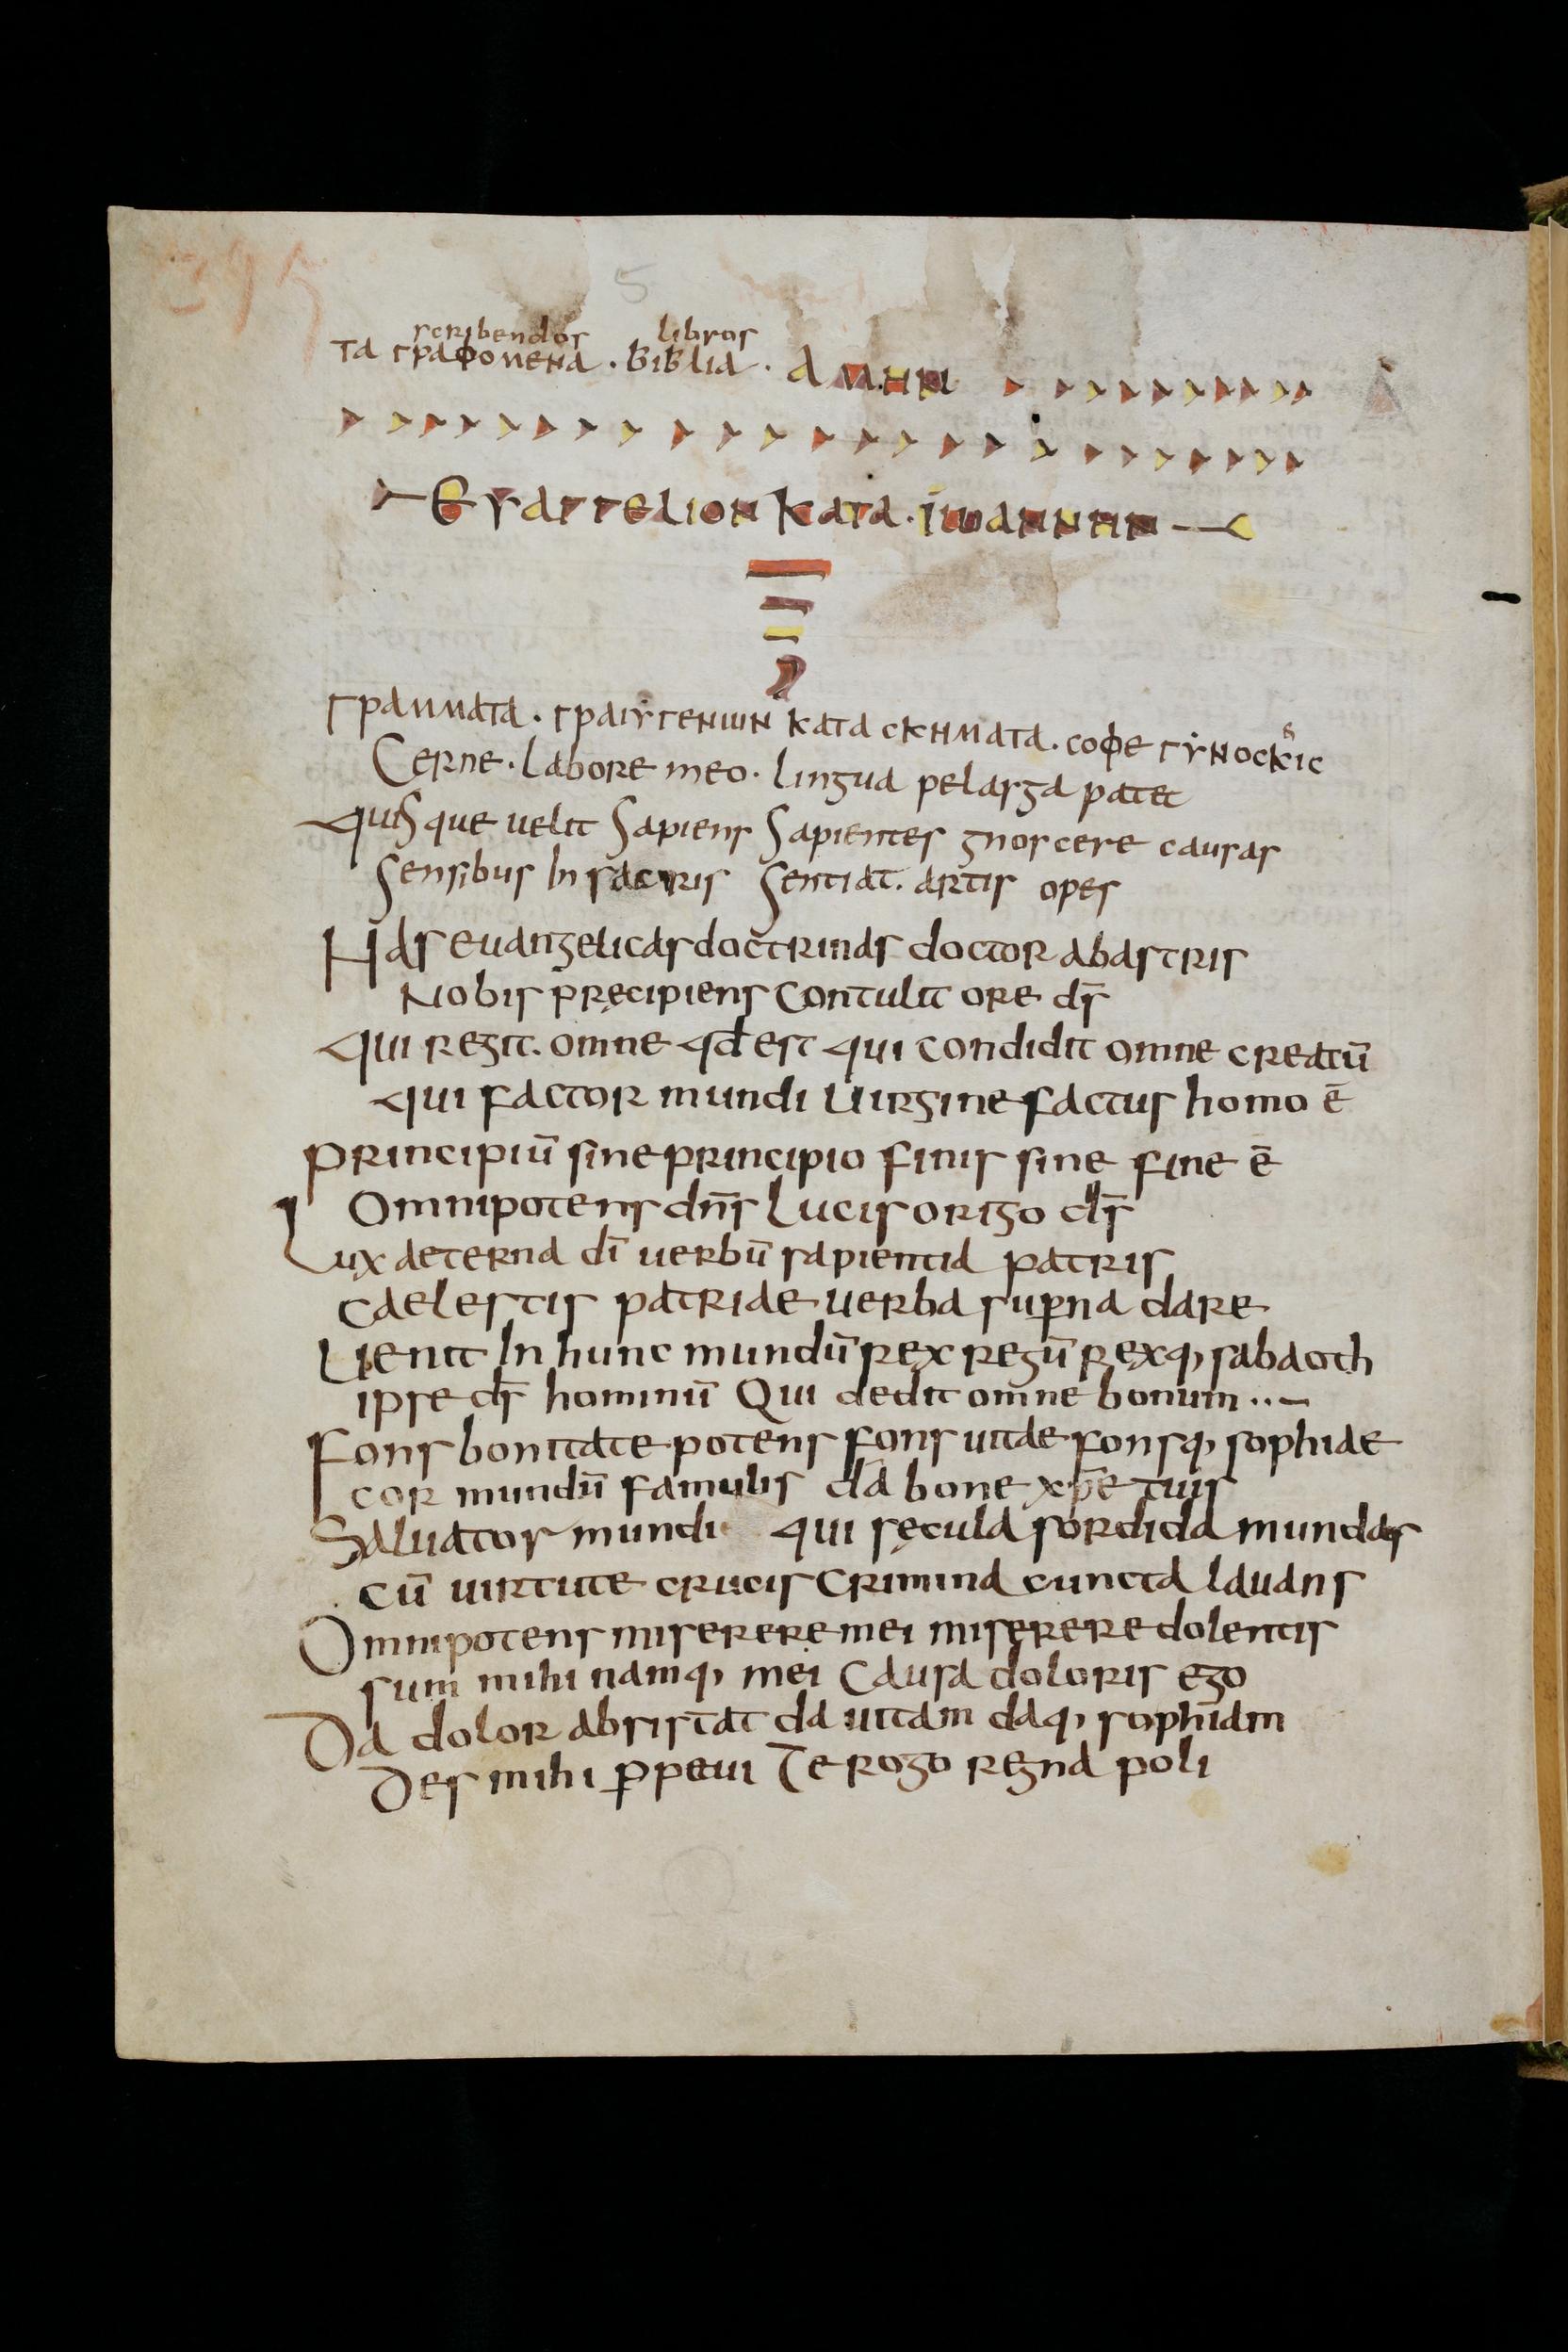 395
5
scribendos libros
ΤΑ ΓΡΑΦΟΜΕΝΑ · ΒΙΒΛΙΑ · ΑΜΗΝ
ΕΥΑΓΓΕΛΙΟΝ ΚΑΤΑ · ΙΩΑΝΝΗΝ
ΓΡΑΜΜΑΤΑ · ΓΡΑΙΥΓΕΝΩΝ ΚΑΤΑ CΚΗΜΑΤΑ · CΟΦΕ ΓΥΝΟCΚΙC
Cerne · labore meo · lingua pelarga patet
quisque uelit sapiens sapientes gnoscere causas
sensibus In sacris sentiat. artis opes
Has euangelicas doctrinas doctor ab astris
Nobis pręcipiens contulit ore ds̄
qui regit. omne qđ est qui condidit omne creatū
qui factor mundi uirgine factus homo ē
principiū sine principio finis sine fine ē
Omnipotens dn̄s lucis origo ds̄
Lux aeterna dī uerbū sapientia patris
caelestis patriae uerba suꝑna dare
Uenit In hunc mundū rex regū rexq, sabaoth
ipse ds̄ hominū Qui dedit omne bonum..-
Fons bonitate potens fons uitae fonsq, sophiae
cor mundū famulis da bone xp̄e tuis
Saluator mundi qui sęcula sordida mundas
cū uirtute crucis crimina cuncta lauans
Omnipotens miserere mei miserere dolentis
sum mihi namq, mei causa doloris ego
Da dolor absistat da uitam daq, sophiam
Des mihi ꝑpetui Te rogo regna poli